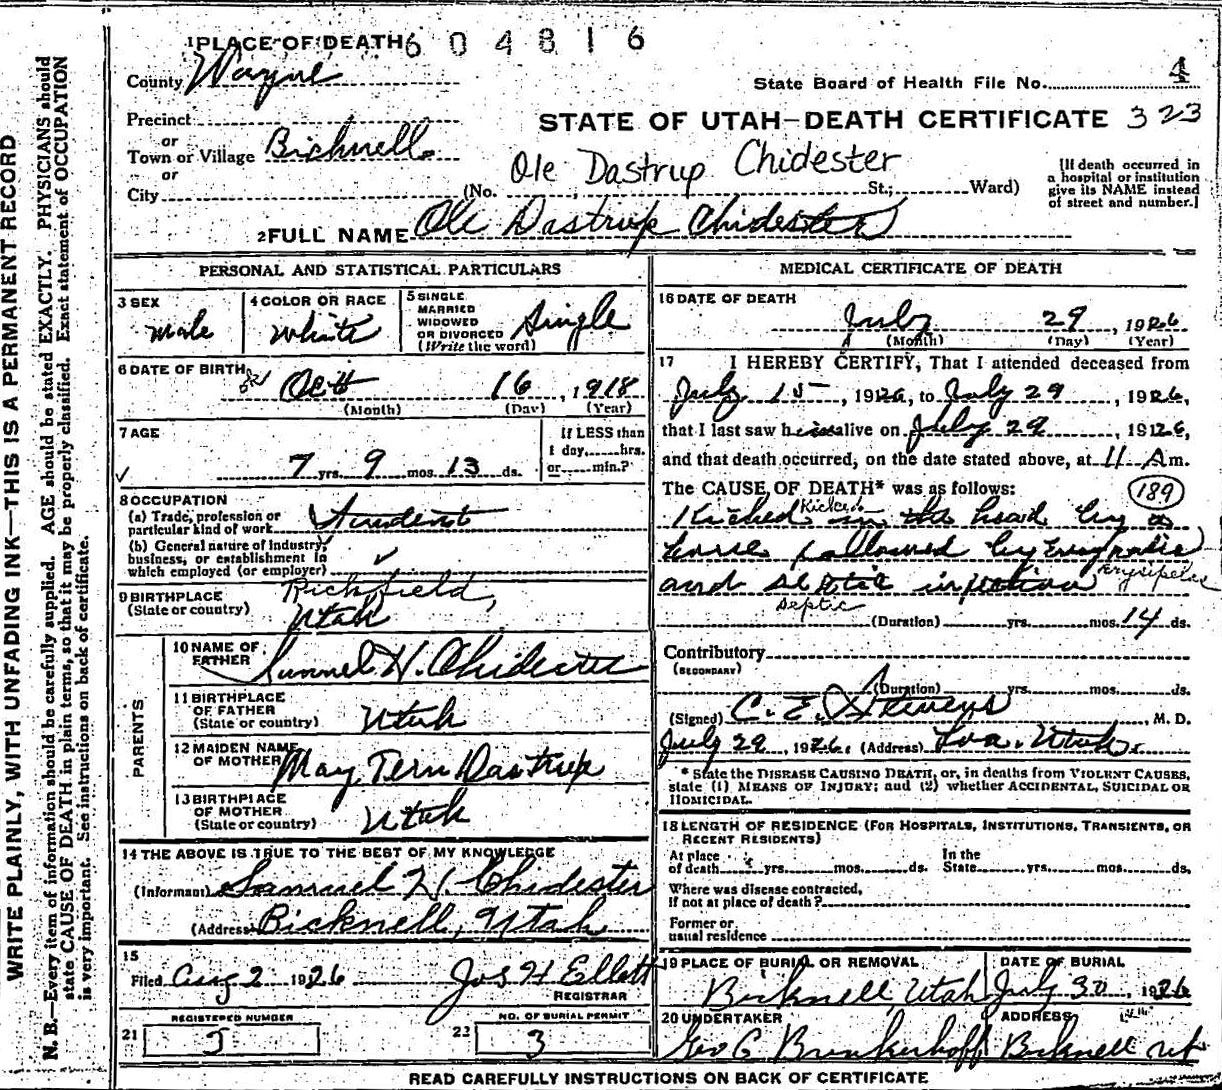 WRITE PLAINLY, WITH UNFADING INK—THIS IS A PERMANENT RECORD
N. B.—Every item of information should be carefully supplied. AGE should be stated EXACTLY. PHYSICIANS should
state CAUSE OF DEATH in plain terms, so that it may be properly classified. Exact statement of OCCUPATION
is very important. See instructions on back of certificate.
1 PLACE OF DEATH 604816
County Wayne
State Board of Health File No. 4
Precinct
STATE OF UTAH—DEATH CERTIFICATE 323
or
Town or Village Bicknell
or
Ole Dastrup Chidester
City (No. St.; Ward)
[If death occurred in
a hospital or institution
give its NAME instead
of street and number.]
2 FULL NAME Ole Dastrup Chidester
PERSONAL AND STATISTICAL PARTICULARS
3 SEX
male
4 COLOR OR RACE
White
5 SINGLE
MARRIED
WIDOWED
OR DIVORCED
(Write the word)
Single
6 DATE OF BIRTH Oct 16, 1918
(Month) (Day) (Year)
7 AGE
7 yrs. 9 mos. 13 ds.
If LESS than
1 day, hrs.
or min.?
8 OCCUPATION
(a) Trade, profession or
particular kind of work Student
(b) General nature of industry,
business, or establishment in
which employed (or employer)
9 BIRTHPLACE
(State or country)
Richfield,
Utah
PARENTS
10 NAME OF
FATHER
Sammel H. Chidester
11 BIRTHPLACE
OF FATHER
(State or country)
Utah
12 MAIDEN NAME
OF MOTHER
May Tern Dastrup
13 BIRTHPLACE
OF MOTHER
(State or country)
Utah
14 THE ABOVE IS TRUE TO THE BEST OF MY KNOWLEDGE
(Informant) Sammel H. Chidester
(Address) Bicknell, Utah
15
Filed Aug 2 1926 Jos H Ellett
REGISTRAR
21 REGISTERED NUMBER
5
22 NO. OF BURIAL PERMIT
3
MEDICAL CERTIFICATE OF DEATH
16 DATE OF DEATH
July 29, 1926
(Month) (Day) (Year)
17 I HEREBY CERTIFY, That I attended deceased from
July 15, 1926, to July 29, 1926,
that I last saw him alive on July 29, 1926,
and that death occurred, on the date stated above, at 11 A m.
The CAUSE OF DEATH* was as follows: 189
Kicked
Kicked in the head by a
horse followed by
Erysipelas
and septic infection
septic
(Duration) yrs. mos. 14 ds.
Contributory
(SECONDARY)
(Duration) yrs. mos. ds.
(Signed) C. E. Stevens, M. D.
July 29, 1926. (Address) Loa. Utah.
* State the DISEASE CAUSING DEATH, or, in deaths from VIOLENT CAUSES,
state (1) MEANS OF INJURY; and (2) whether ACCIDENTAL, SUICIDAL OR
HOMICIDAL.
18 LENGTH OF RESIDENCE (FOR HOSPITALS, INSTITUTIONS, TRANSIENTS, OR
RECENT RESIDENTS)
At place
of death yrs. mos. ds.
In the
State yrs. mos. ds.
Where was disease contracted,
if not at place of death?
Former or
usual residence
19 PLACE OF BURIAL OR REMOVAL
Bicknell, Utah
DATE OF BURIAL
July 30, 1926
20 UNDERTAKER
Geo C Brinkerhoff
ADDRESS
Bicknell Ut
READ CAREFULLY INSTRUCTIONS ON BACK OF CERTIFICATE